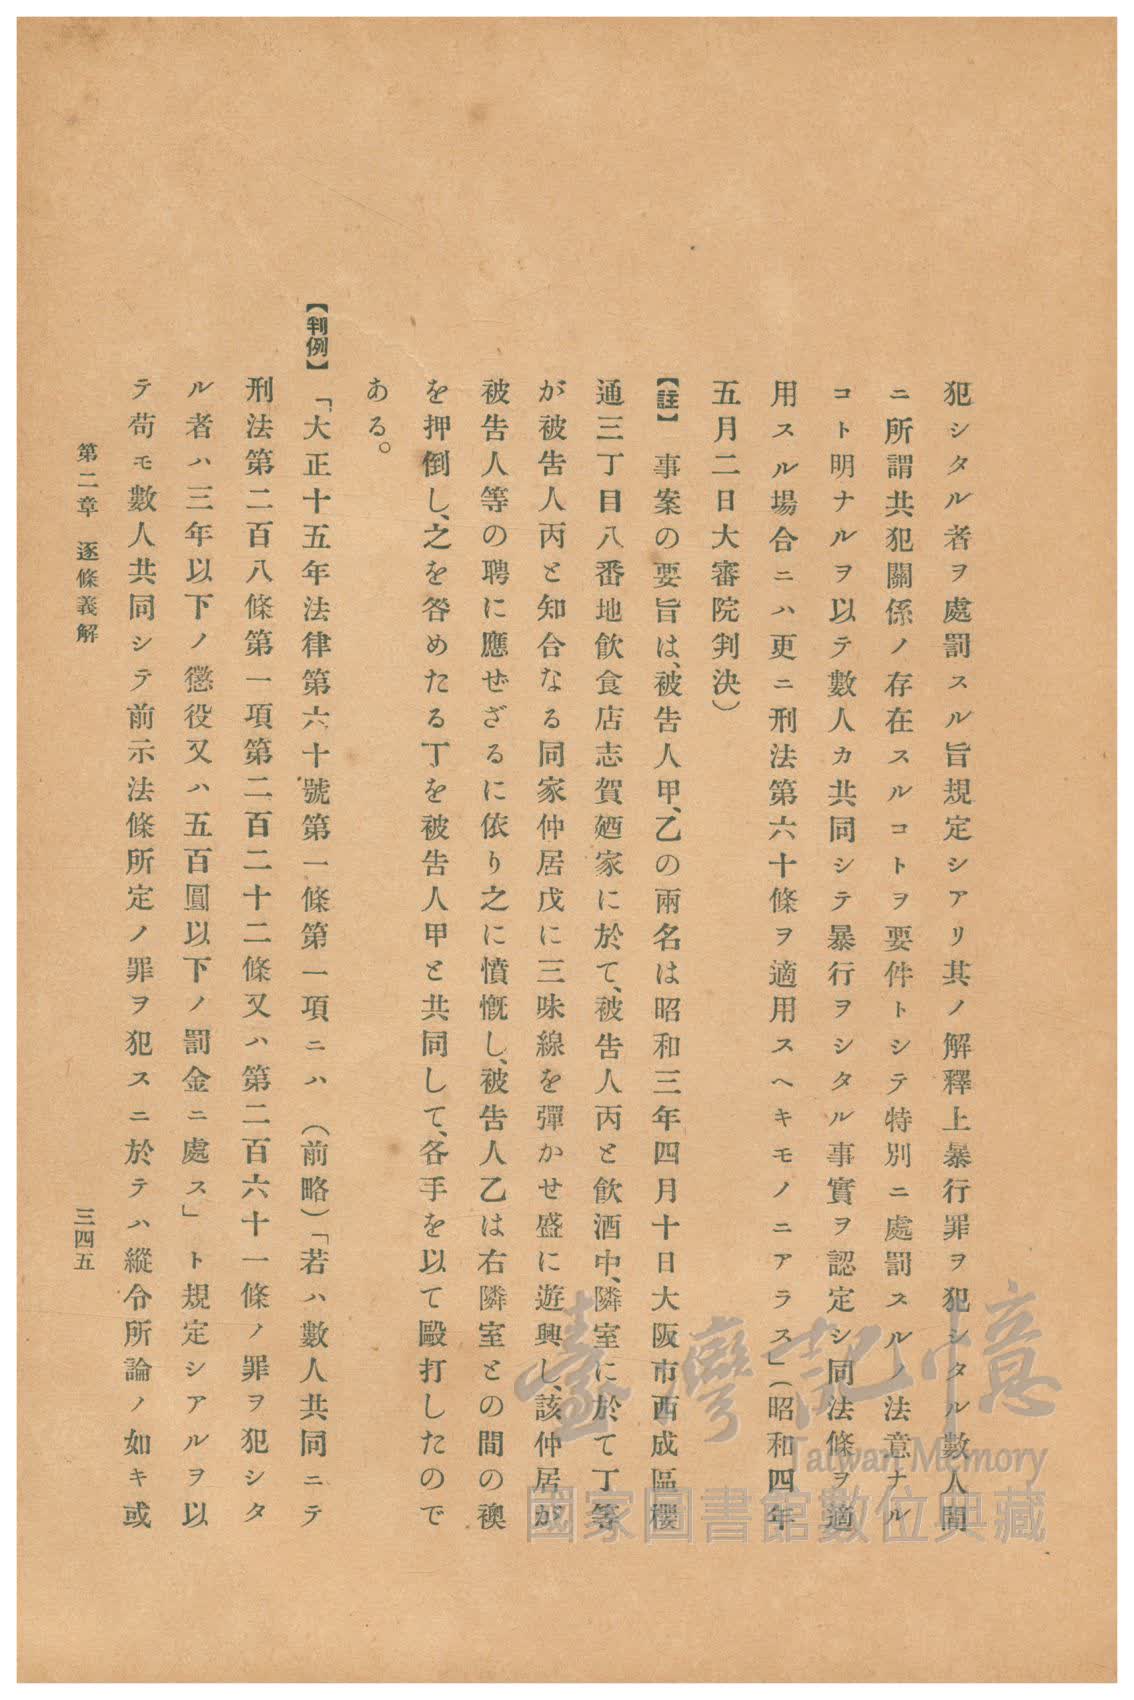 犯シタル者ヲ處罰スル旨規定シアリ其ノ解釋上暴行罪ヲ犯シタル數人間
ニ所謂共犯關係ノ存在スルコトヲ要件トシテ特別ニ處罰スルノ法意ナル
コト明ナルヲ以テ數人カ共同シテ暴行ヲシタル事實ヲ認定シ同法條ヲ適
用スル場合ニハ更ニ刑法第六十條ヲ適用スヘキモノニアラス」(昭和四年
五月二日大審院判決)
【註】 事案の要旨は、被告人甲、乙の兩名は昭和三年四月十日大阪市西成區櫻
通三丁目八番地飲食店志賀廼家に於て、被告人丙と飲酒中、隣室に於て丁等
が被告人丙と知合なる同家仲居戊に三味線を彈かせ盛に遊興し、該仲居が
被告人等の聘に應ぜざるに依り之に憤慨し、被告人乙は右隣室との間の襖
を押倒し、之を咎めたる丁を被告人甲と共同して、各手を以て毆打したので
ある。
【判例】 「大正十五年法律第六十號第一條第一項ニハ (前略)「若ハ數人共同ニテ
刑法第二百八條第一項第二百二十二條又ハ第二百六十一條ノ罪ヲ犯シタ
ル者ハ三年以下ノ懲役又ハ五百圓以下ノ罰金ニ處ス」ト規定シアルヲ以
テ苟モ數人共同シテ前示法條所定ノ罪ヲ犯スニ於テハ縱令所論ノ如キ或
第二章 逐條義解
三四五
臺灣記憶
Taiwan Memory
國家圖書館數位典藏